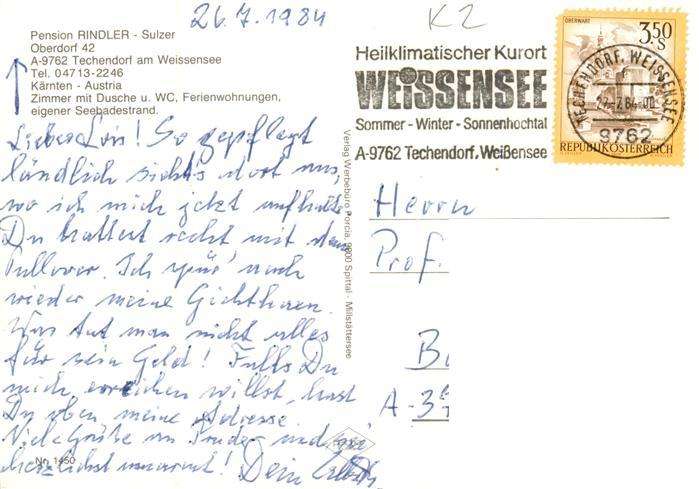 26.7.1984
K2
Pension RINDLER - Sulzer
Oberdorf 42
A-9762 Techendorf am Weissensee
Tel. 04713-2246
Kärnten - Austria
Zimmer mit Dusche u. WC, Ferienwohnungen,
eigener Seebadestrand.
Lieber Loisl! So gepflegt
ländlich sieht's dort aus,
wo ich mich jetzt aufhalte.
Du hattest recht mit dem
Pullover. Ich spür' auch
wieder meine Gichthaxen.
Was tut man nicht alles
für sein Geld! Falls Du
mich erreichen willst, hast
Du oben meine Adresse.
Viele Grüße an und
herzlichst umarmt! Dein
Nr. 1450
Verlag Werbebüro Porcia, 9800 Spittal - Millstättersee
Heilklimatischer Kurort
WEISSENSEE
Sommer - Winter - Sonnenhochtal
A-9762 Techendorf, Weißensee
OBERWART
3.50
S
TECHENDORF, WEISSENSEE
9762
REPUBLIK ÖSTERREICH
Herrn
Prof.
A-34